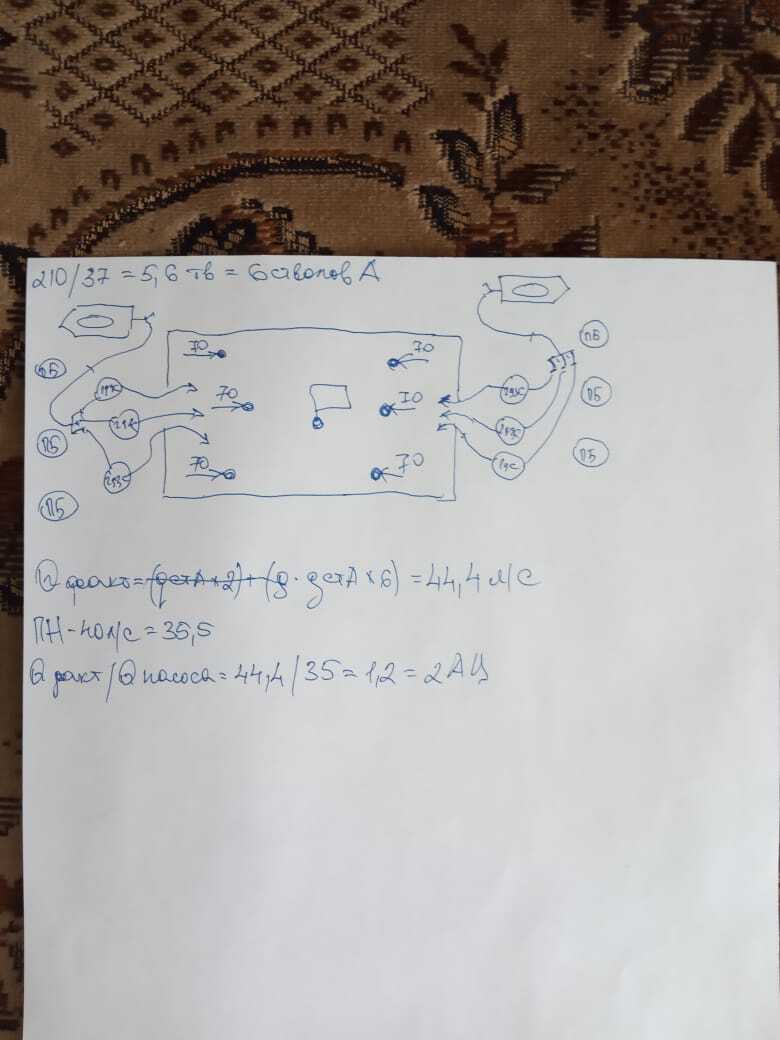 210/37 = 5,6 тв = 6 стволов А
ПБ
ПБ
ПБ
70
70
70
70
70
70
ПБ
ПБ
ПБ
Q факт = (qстА × 2) + (q · qстА × 6) = 44,4 л/с
ПН-40 л/с = 35,5
Q факт / Q насоса = 44,4 / 35 = 1,2 = 2 АЦ